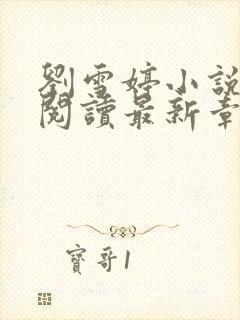 劉雪婷小說
閱讀最新章
寶哥1